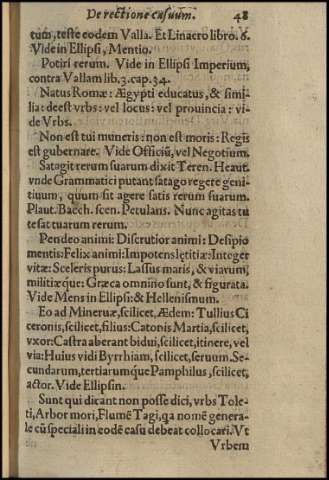 De rectione casuum. 48
tum, teste eodem Valla. Et Linacro libro. 6.
Vide in Ellipsi, Mentio.
Potiri rerum. Vide in Ellipsi Imperium,
contra Vallam lib. 3. cap. 34.
Natus Romæ: Ægypti educatus, & simi-
lia: deest vrbs: vel locus: vel prouincia: vi-
de Vrbs.
Non est tui muneris: non est moris: Regis
est gubernare. Vide Officiũ, vel Negotium.
Satagit rerum suarum dixit Teren. Heaut.
vnde Grammatici putant satago regere geni-
tiuum, quum sit agere satis rerum suarum.
Plaut. Bacch. scen. Petulans. Nunc agitas tu
te sat tuarum rerum.
Pendeo animi: Discrutior animi: Desipio
mentis: Felix animi: Impotens lętitiæ: Integer
vitæ: Sceleris purus: Lassus maris, & viarum,
militiæque: Græca omnino sunt, & figurata.
Vide Mens in Ellipsi: & Hellenismum.
Eo ad Mineruæ, scilicet, Ædem: Tullius Ci
ceronis, scilicet, filius: Catonis Martia, scilicet,
vxor: Castra aberant bidui, scilicet, itinere, vel
via: Huius vidi Byrrhiam, scilicet, seruum. Se-
cundarum, tertiarumque Pamphilus, scilicet,
actor. Vide Ellipsin.
Sunt qui dicant non posse dici, vrbs Tole-
ti, Arbor mori, Flumẽ Tagi, qa nomẽ genera-
le cũ speciali in eodẽ casu debeat collocari. Vt
Vrbem